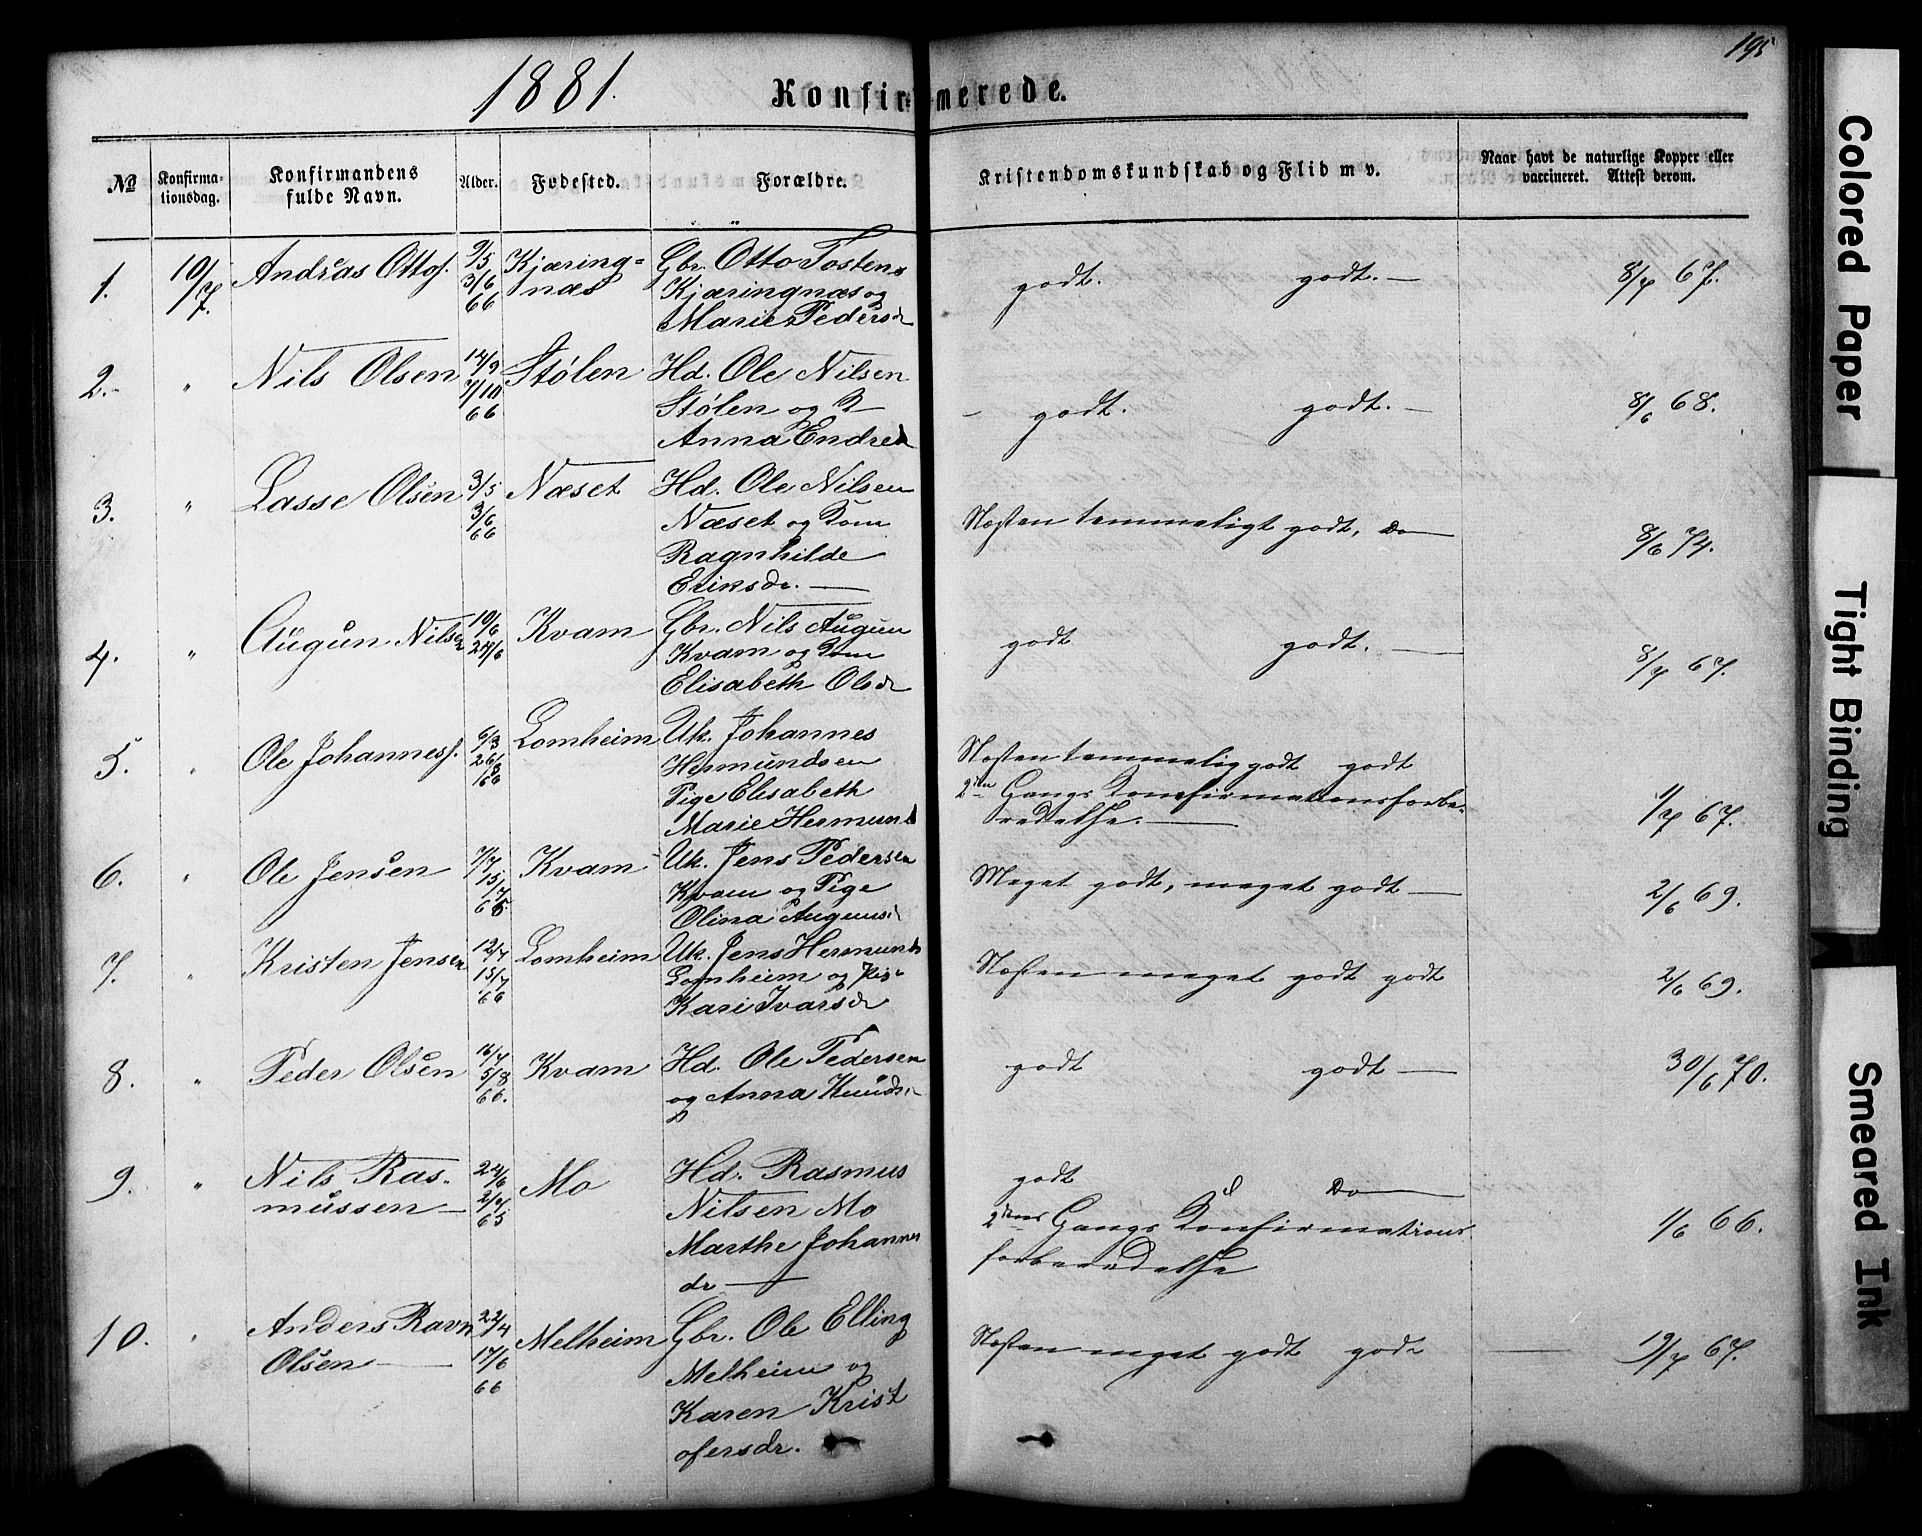 195
1881.
Konfirmerede.
№
Konfirma-
tionsdag.
Konfirmandens
fulde Navn.
Alder.
Fødested.
Forældre.
Kristendomskundskab og Flid m v.
Naar havt de naturlige Kopper eller
vaccineret. Attest derom.
1. 10/7. Andras Ottos. 9/5 3/6 66 Kjæring=
næs
Gbr. Otto Tostens
Kjæringnæs og
Marie Pedersdr
godt. godt. — 8/7 67.
2.- " Nils Olsen 14/9 7/10 66 Stølen
Hd. Ole Nilsen
Stølen og K
Anna Endred
- godt. godt. — 8/6 68.
3. " Lasse Olsen 3/5 3/6 66 Næset
Hd. Ole Nilsen
Næset og Kone
Ragnhilde
Erinsdr. —
Næsten temmeligt godt, Do — 8/6 74.
4. " Augun Nilsen 10/6 24/6 Kvam
Gbr. Nils Augun
Kvam og Kone
Elisabeth Olsdr
godt godt. — 8/7 67.
5. " Ole Johanness. 6/3 26/3 66 Lomheim
Uk. Johannes
Hermundsen
Pige Elisabeth
Marie Hermund
Næsten temmelig godt godt
2den Gangs Konfirmationsforbe-
redelse. —
1/7 67.
6. " Ole Jensen 7/7 15/7 65. Kvam
Uk. Jens Pedersen
Kvam og Pige
Olina Augunsd
Meget godt, meget godt — 2/6 69.
7. " Kristen Jensen 12/7 15/7 66 Lomheim
Uk. Jens Hermunds
Lomheim og Pige
Kari Ivarsdr
Næsten meget godt godt 2/6 69.
8. " Peder Olsen 16/7 5/8 66. Kvam
Hd. Ole Pedersen
og Anna Knudsd
godt godt — 30/6 70.
9. " Nils Ras-
mussen — 24/6 2/7 65 Mo
Hd. Rasmus
Nilsen Mo
Marthe Johannes
dr —
godt Do —
2dens Gangs Konfirmations
forberedelse
1/6 66.
10. " Anders Ravn
Olsen — 22/4 17/6 66 Melheim
Gbr. Ole Elling
Melheim og
Karen Krist
ofersdr.
Næsten meget godt godt — 19/7 67.
Colored Paper
Tight Binding
Smeared Ink